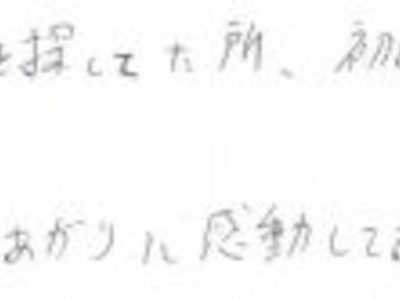 を探してた所、初
あがりに感動して